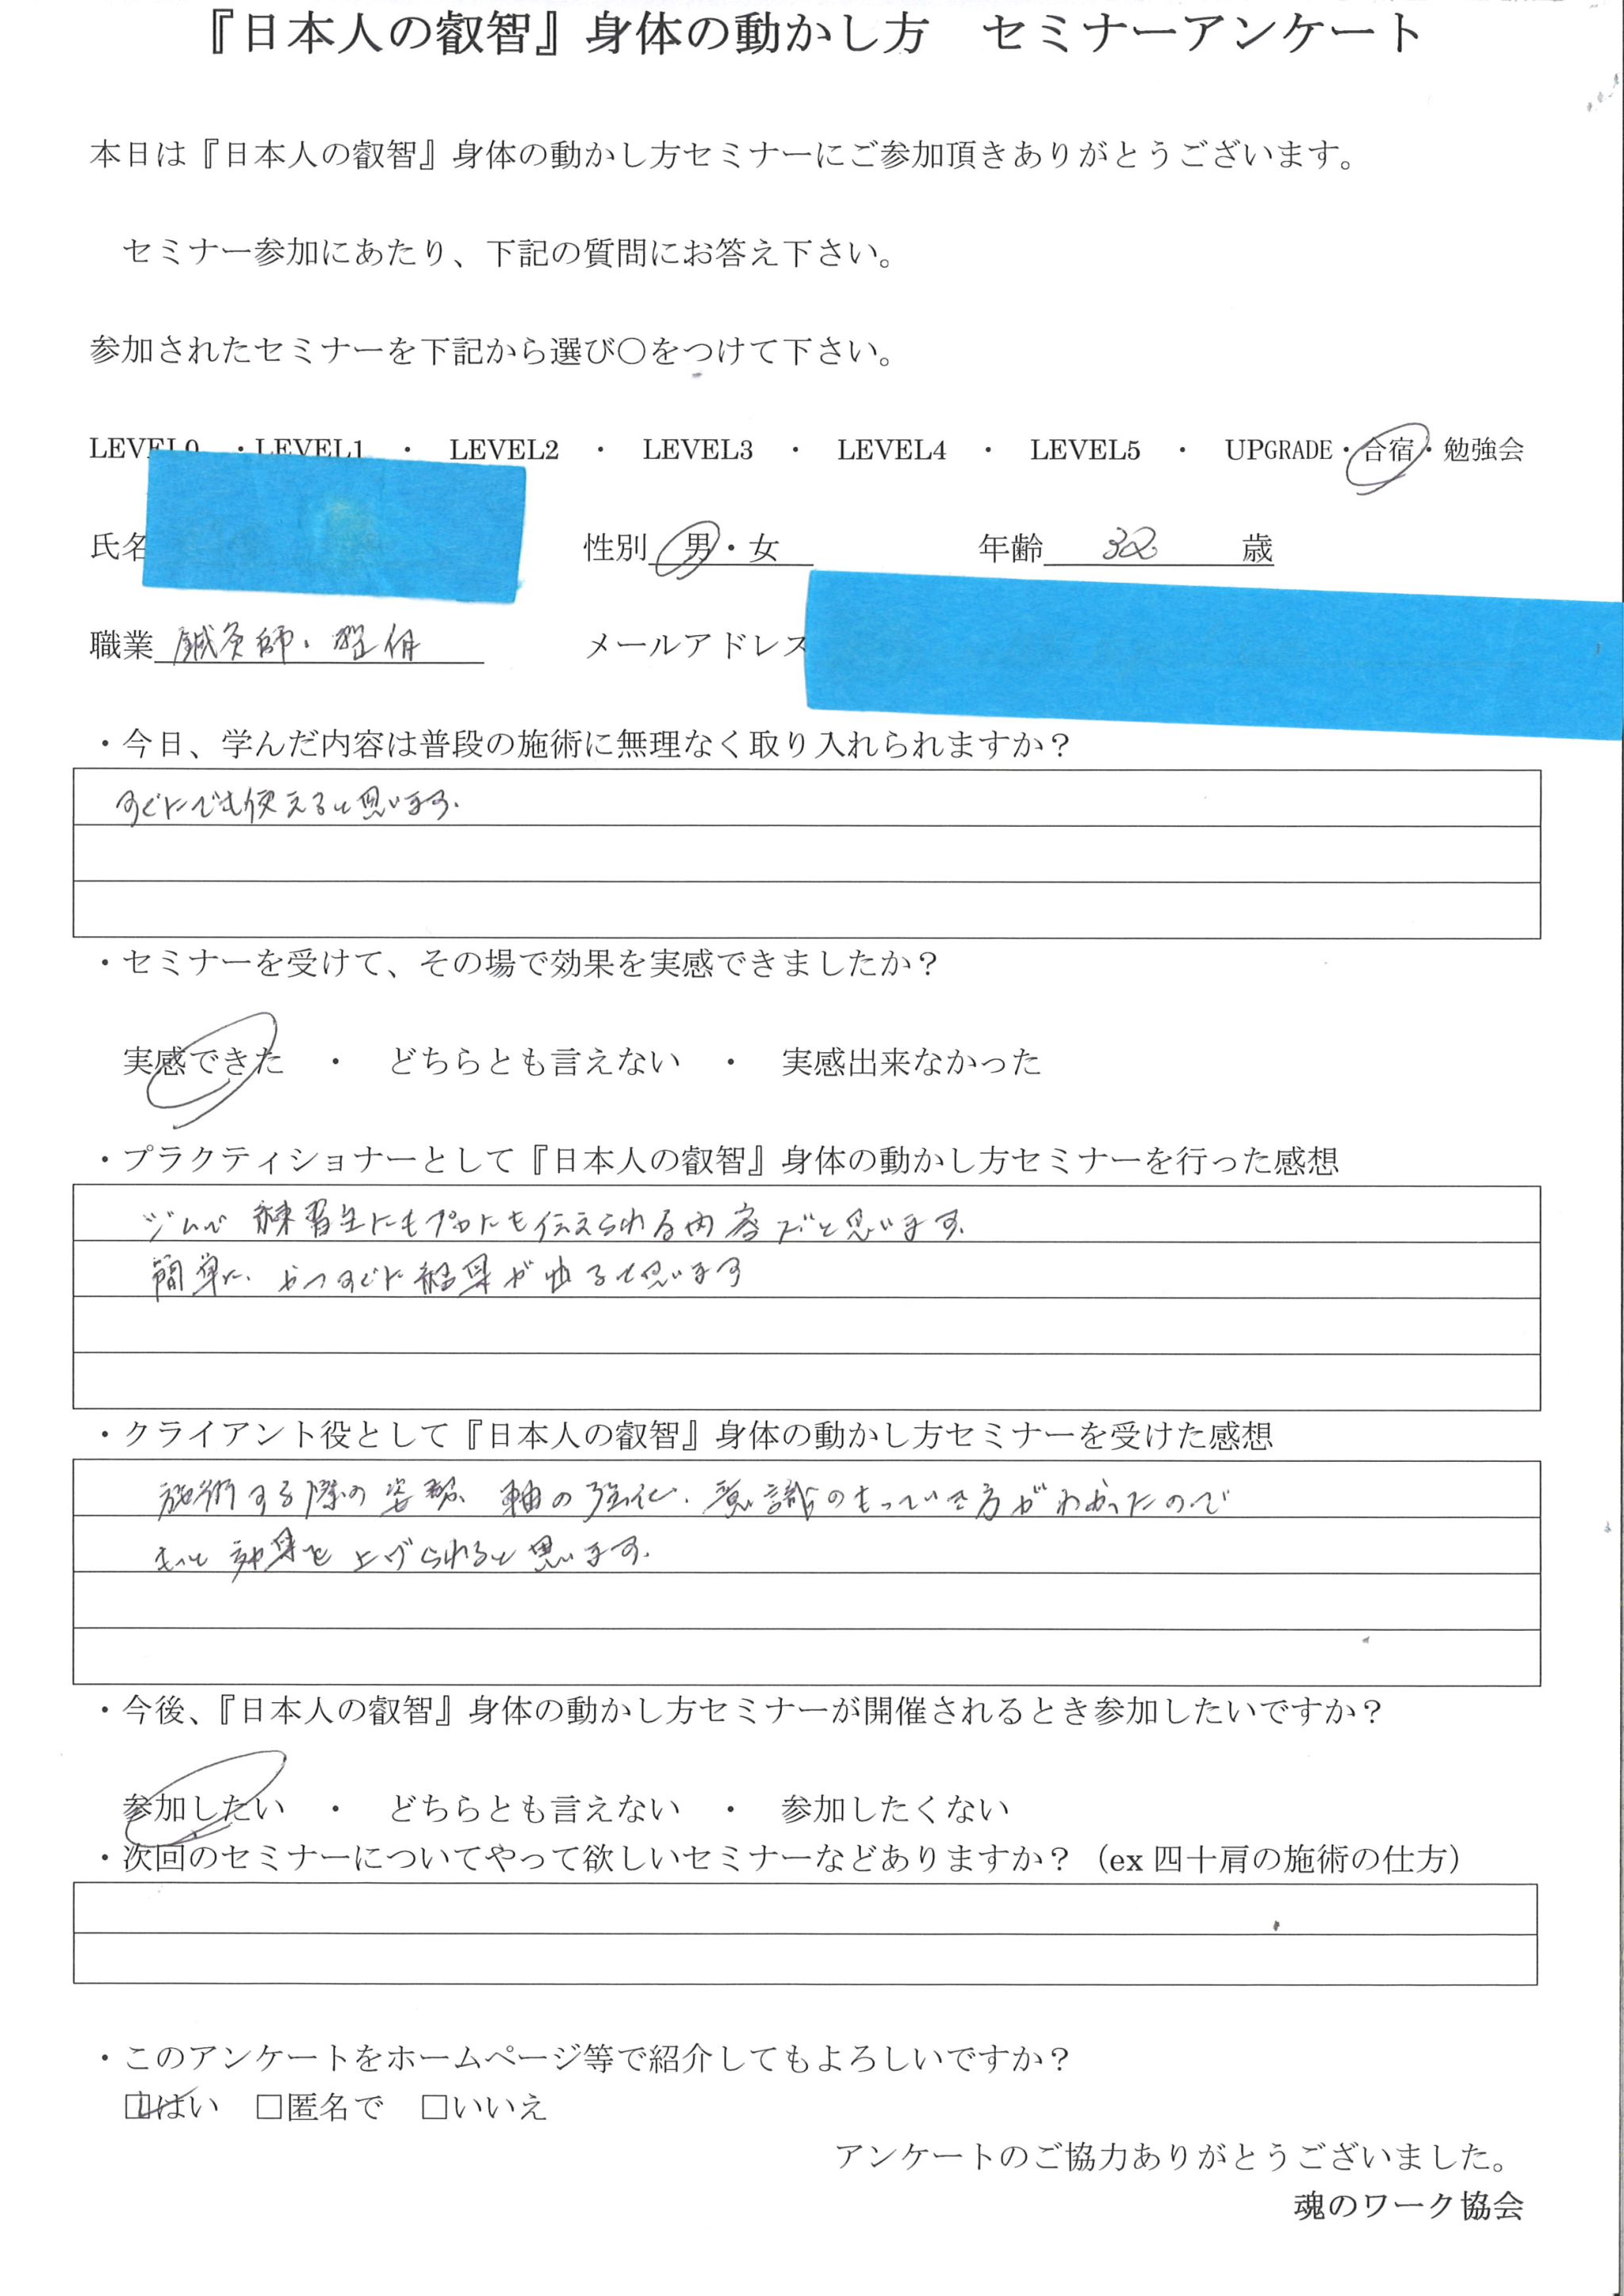 『日本人の叡智』身体の動かし方　セミナーアンケート
本日は『日本人の叡智』身体の動かし方セミナーにご参加頂きありがとうございます。
セミナー参加にあたり、下記の質問にお答え下さい。
参加されたセミナーを下記から選び〇をつけて下さい。
LEVEL0　・LEVEL1　・　LEVEL2　・　LEVEL3　・　LEVEL4　・　LEVEL5　・　UPGRADE・合宿・勉強会
氏名　性別　男・女　年齢　32　歳
職業　鍼灸師・　メールアドレス
・今日、学んだ内容は普段の施術に無理なく取り入れられますか？
すぐにでも使えると思います。
・セミナーを受けて、その場で効果を実感できましたか？
実感できた　・　どちらとも言えない　・　実感出来なかった
・プラクティショナーとして『日本人の叡智』身体の動かし方セミナーを行った感想
ジムで練習生にもプロにも伝えられる内容だと思います。
簡単に、かつすぐに結果が出ると思います
・クライアント役として『日本人の叡智』身体の動かし方セミナーを受けた感想
施術する際の姿勢、軸の強化、意識のもっていき方がわかったので
もっと効果を上げられると思います。
・今後、『日本人の叡智』身体の動かし方セミナーが開催されるとき参加したいですか？
参加したい　・　どちらとも言えない　・　参加したくない
・次回のセミナーについてやって欲しいセミナーなどありますか？（ex 四十肩の施術の仕方）
・このアンケートをホームページ等で紹介してもよろしいですか？
□はい　□匿名で　□いいえ
アンケートのご協力ありがとうございました。
魂のワーク協会